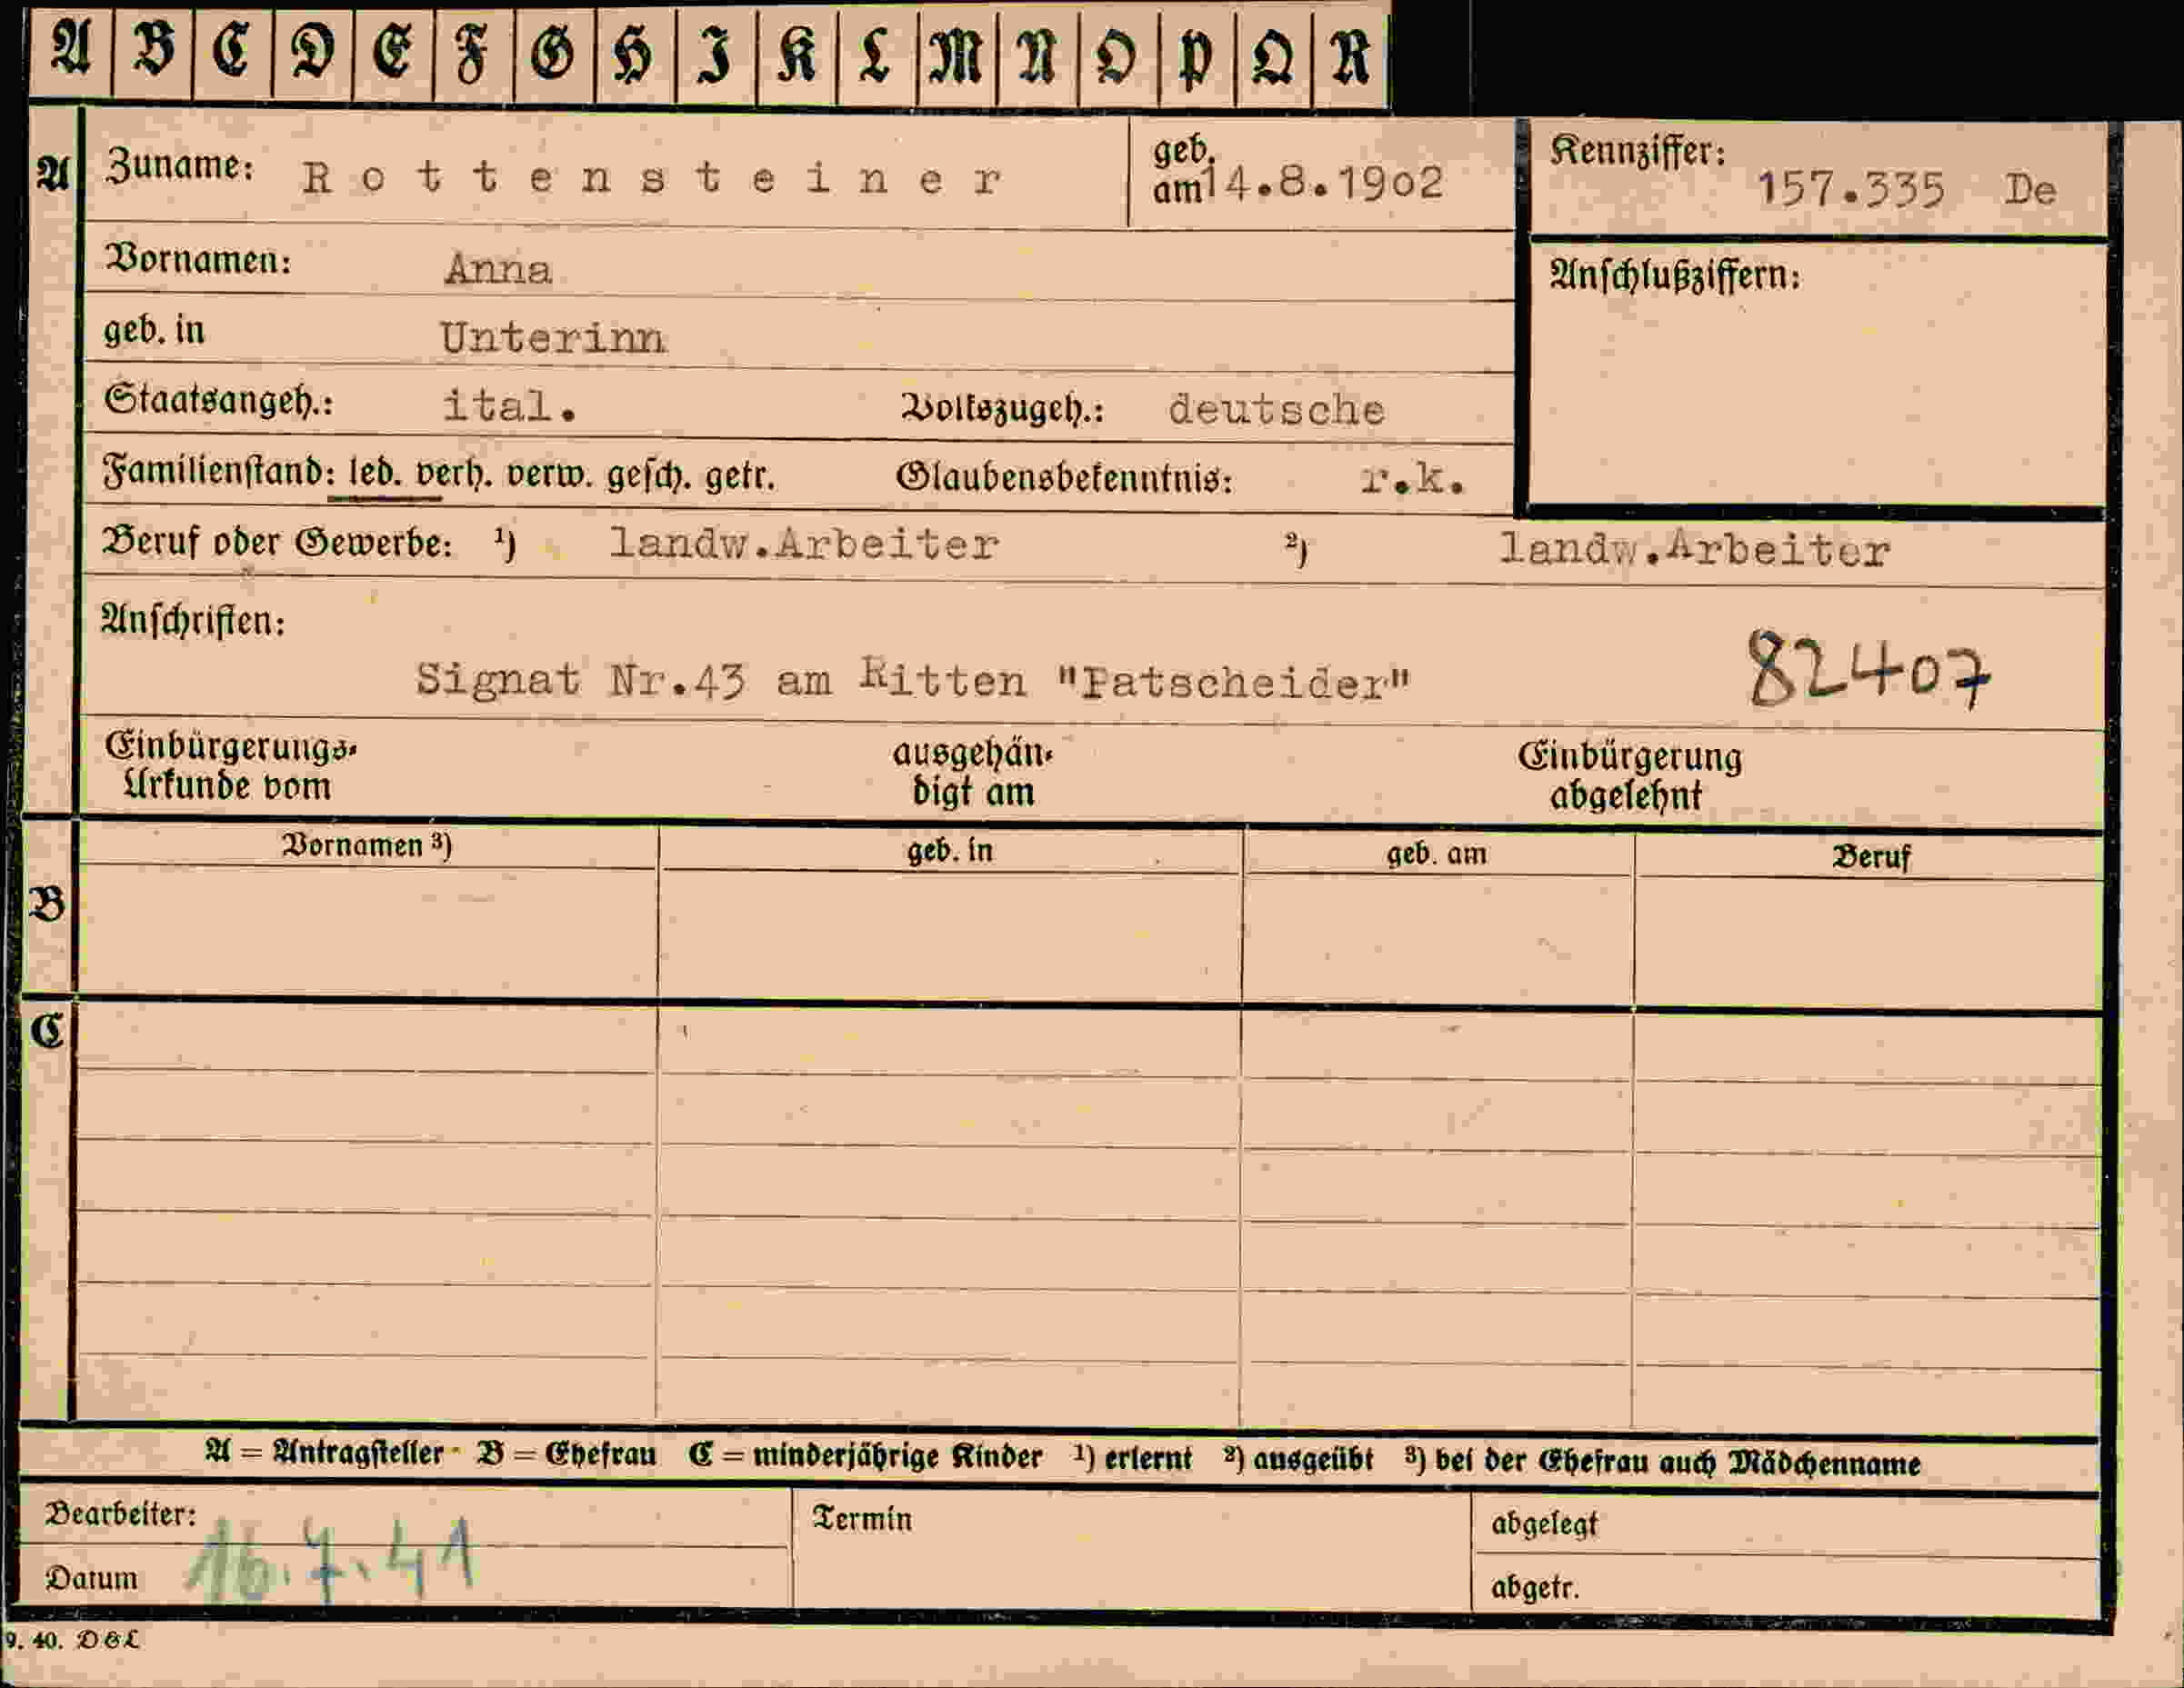 A B C D E F G H I K L M N O P Q R
A Zuname: Rottensteiner geb. am 14.8.1902 Kennziffer: 157.335 De
Vornamen: Anna Anschlußziffern:
geb. in Unterinn
Staatsangeh.: ital. Volkszugeh.: deutsche
Familienstand: led. verh. verw. gesch. getr. Glaubensbekenntnis: r.k.
Beruf oder Gewerbe: ¹) landw.Arbeiter ²) landw.Arbeiter
Anschriften:
Signat Nr.43 am Ritten "Patscheider" 82407
Einbürgerungs- ausgehän- Einbürgerung
Urkunde vom digt am abgelehnt
Vornamen ³) geb. in geb. am Beruf
B
C
A = Antragsteller · B = Ehefrau C = minderjährige Kinder ¹) erlernt ²) ausgeübt ³) bei der Ehefrau auch Mädchenname
Bearbeiter: Termin abgelegt
Datum 16.7.41 abgetr.
9. 40. D&L